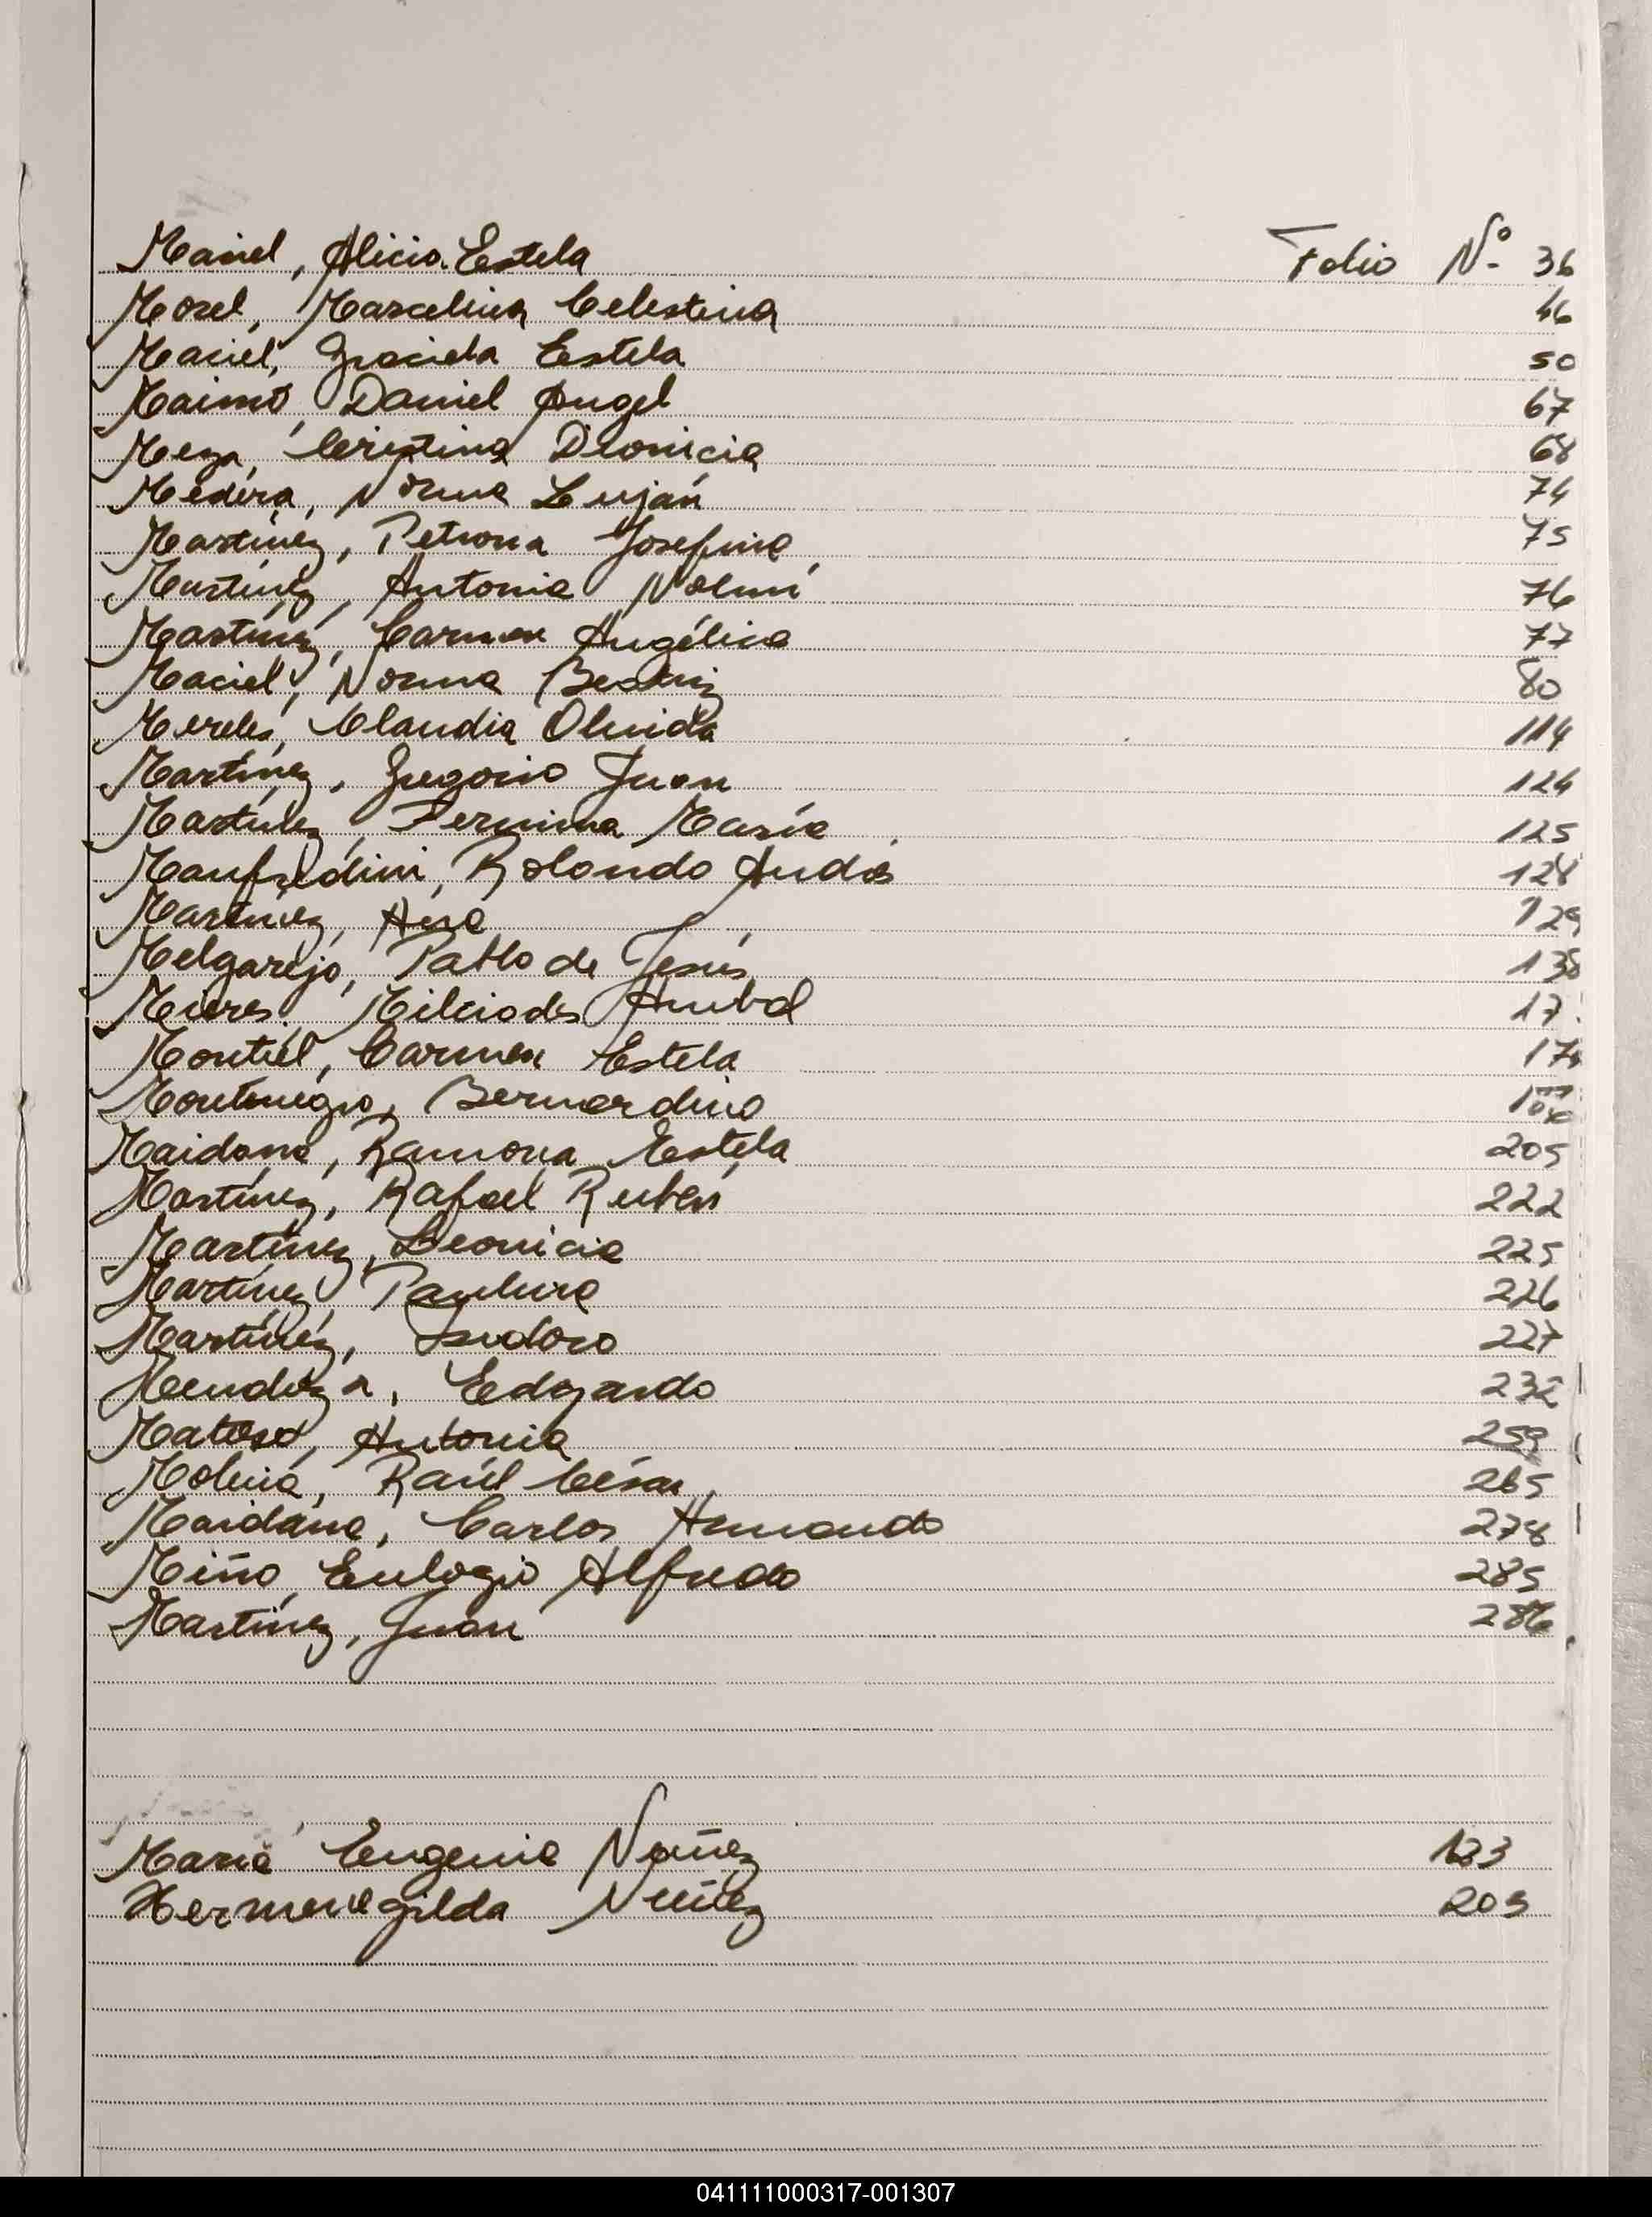 Maciel, Alicia Estela Folio Nº 36
Morel, Marcelina Celestina 46
Maciel, Graciela Estela 50
Maimó, Daniel Angel 67
Meza, Cristina Dionicia 68
Medina, Norma Luján 74
Martínez, Petrona Josefina 75
Martínez, Antonia Noemí 76
Martínez, Carmen Angélica 77
Maciel, Norma Beatriz 80
Mereles, Claudia Olinida 114
Martínez, Gregorio Juan 124
Martínez, Fermina María 125
Manfredini, Rolando Andrés 128
Martínez, Ana 129
Melgarejo, Pablo de Jesús 138
Mieres, Milciades Anibal 17
Montiel, Carmen Estela 174
Montenegro, Bernardino
Maidana, Ramona Estela 205
Martínez, Rafael Rubén 222
Martínez, Leonicia 225
Martínez, Paulina 226
Martínez, Isidoro 227
Mendoza, Edgardo 232
Matoso, Antonia 259
Molina, Raúl César 265
Maidana, Carlos Armando 278
Miño, Eulogio Alfredo 285
Martínez, Juan 286
María Eugenia Núñez 133
Hermenegilda Núñez 209
041111000317-001307